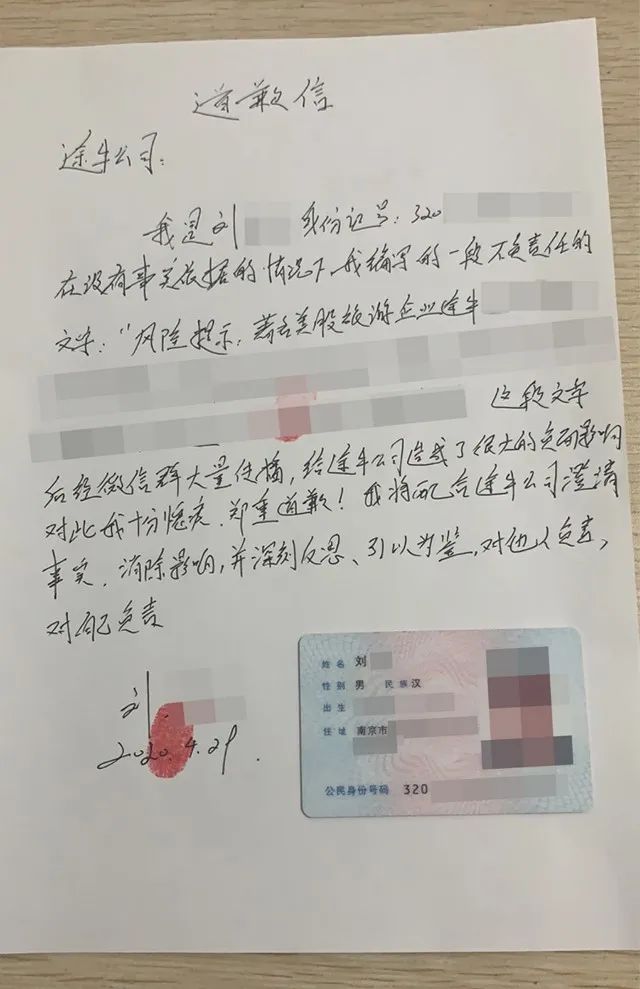 道歉信
途牛公司：
我是刘 身份证号：320
在没有事实依据的情况下，我编写的一段不负责任的
文字："风险提示，著名美股旅游企业途牛
这段文字
后经微信群大量传播，给途牛公司造成了很大的负面影响
对此我十分愧疚，郑重道歉！我将配合途牛公司澄清
事实，消除影响，并深刻反思、引以为鉴，对他人负责，
对自己负责
刘
2020.4.29.
姓名 刘
性别 男 民族 汉
出生
住址 南京市
公民身份号码 320